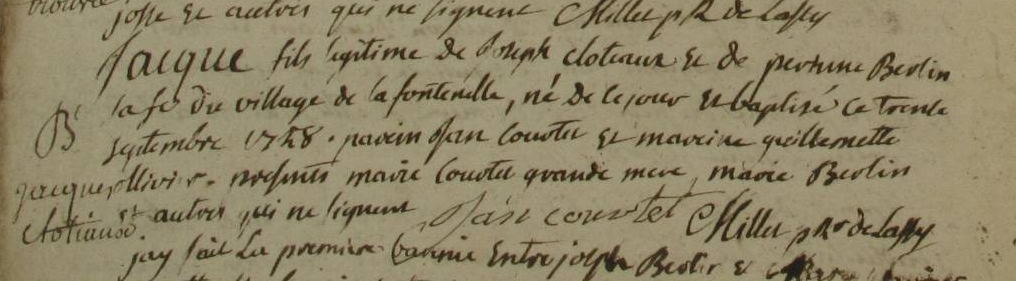 josse et autres qui ne signent Millet pR de Lassy
Jacque fils legitime de Joseph cloteaux et de perrune Berlin
B sa fe du village de la fontenelle, né de ce jour et baptisé ce trente
septembre 1748. parein Jan Courtet et mareine guillemette
jacques ollivier. presents marie Courtet grande mere, marie Berlin
clotiaux et autres qui ne signent Jan courtel Millet pRr de Lassy
jay fait La premiere bannie Entre joseph Berlin et